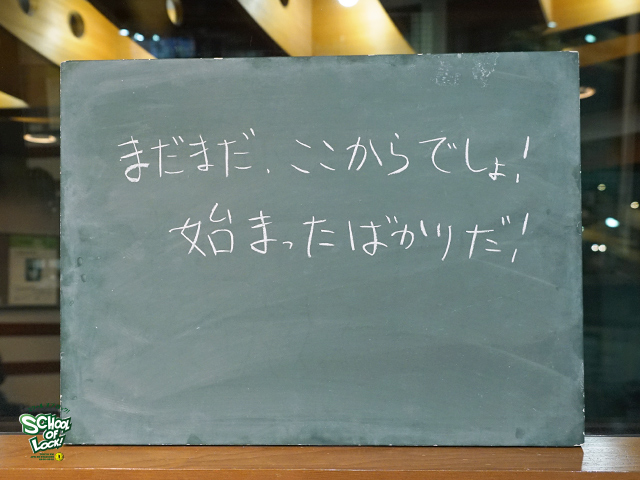 まだまだ、ここからでしょ!
始まったばかりだ!
SCHOOL
OF
LOCK!